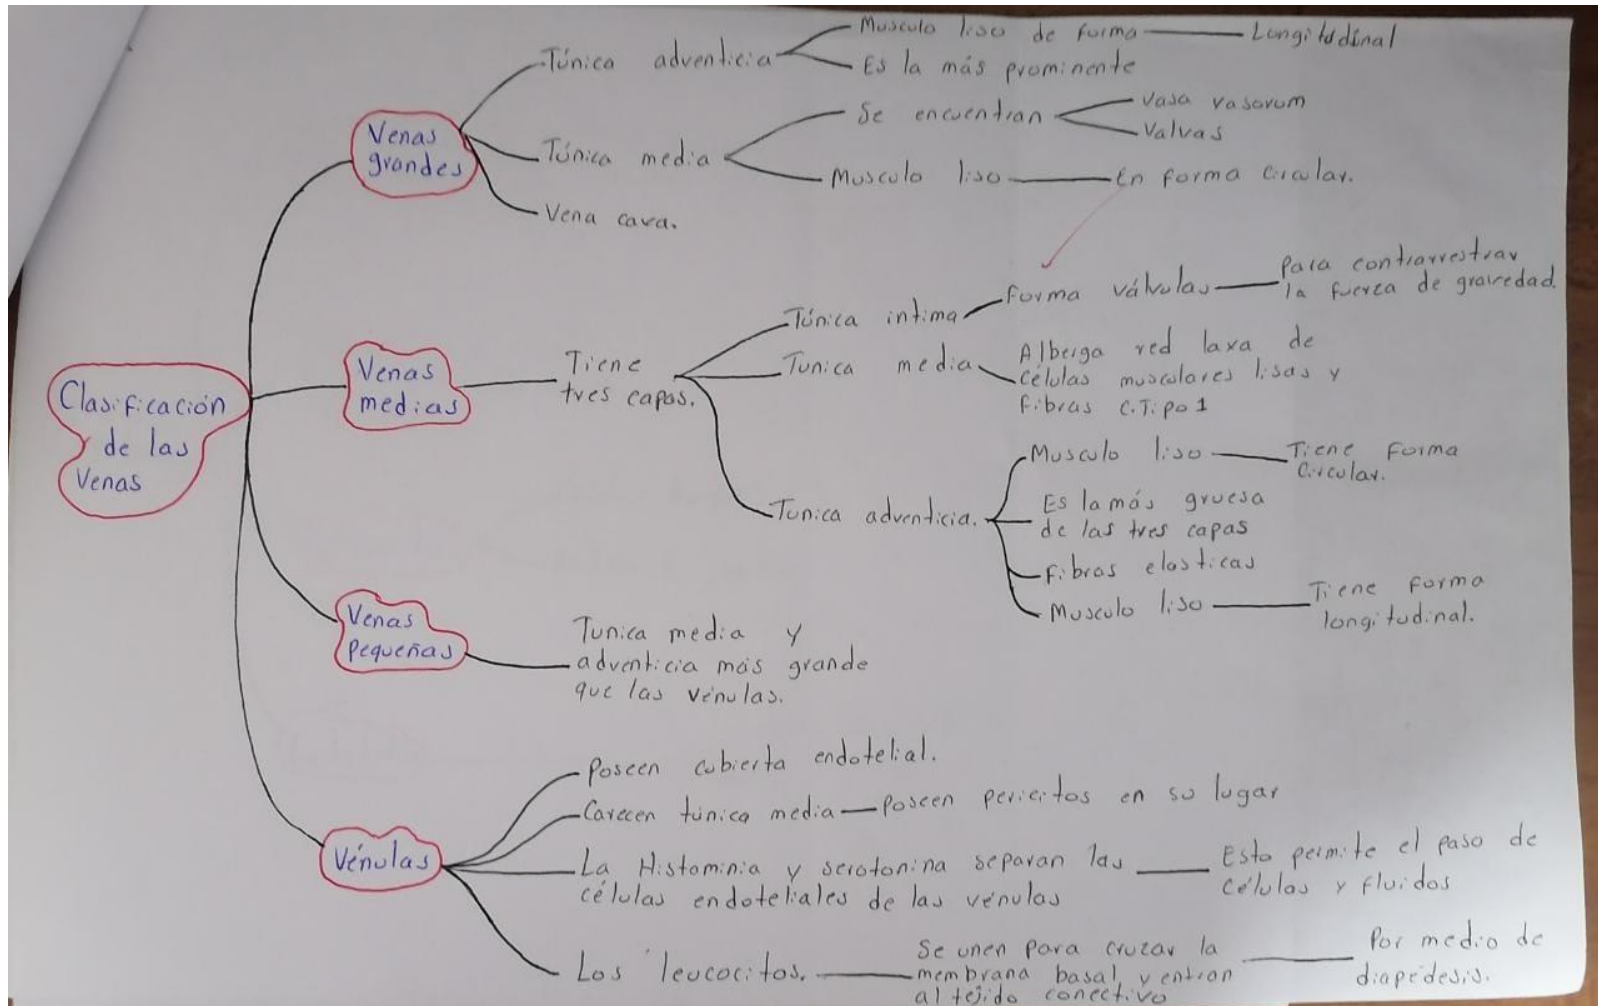 Clasificación
de las
Venas
Venas
grandes
Túnica adventicia
Musculo liso de forma
Longitudinal
Es la más prominente
Túnica media
Se encuentran
Vasa vasorum
Valvas
Musculo liso
En forma circular.
Vena cava.
Venas
medias
Tiene
tres capas.
Túnica intima
Forma válvulas
Para contrarrestrar
la fuerza de gravedad.
Tunica media
Alberga red laxa de
células musculares lisas y
fibras C.Tipo 1
Tunica adventicia.
Musculo liso
Tiene forma
Circular.
Es la más gruesa
de las tres capas
Fibras elasticas
Musculo liso
Tiene forma
longitudinal.
Venas
pequeñas
Tunica media y
adventicia más grande
que las vénulas.
Vénulas
Poseen cubierta endotelial.
Carecen túnica media
Poseen pericitos en su lugar
La Histominia y serotonina separan las
células endoteliales de las vénulas
Esto permite el paso de
células y fluidos
Los leucocitos.
Se unen para cruzar la
membrana basal y entran
al tejido conectivo
Por medio de
diapédesis.